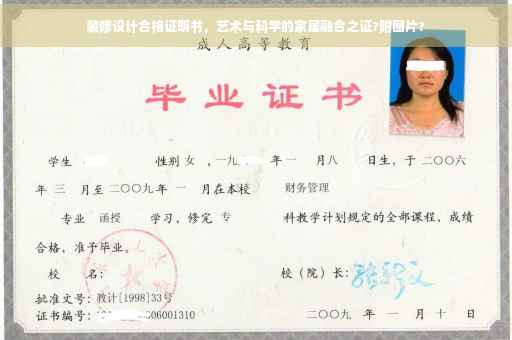 装修设计合格证明书，艺术与科学的家居融合之证?附图片?
成人高等教育
毕业证书
学生 性别 女 ，一九 年 一 月八 日生，于 二〇〇六
年 三 月至 二〇〇九 年 一 月在本校 财务管理
专业 函授 学习，修完 专 科教学计划规定的全部课程，成绩
合格，准予毕业。
校 名： 校（院）长：
批准文号：教计[1998]33号
证书编号： 06001310 二〇〇九 年 一 月 十 日